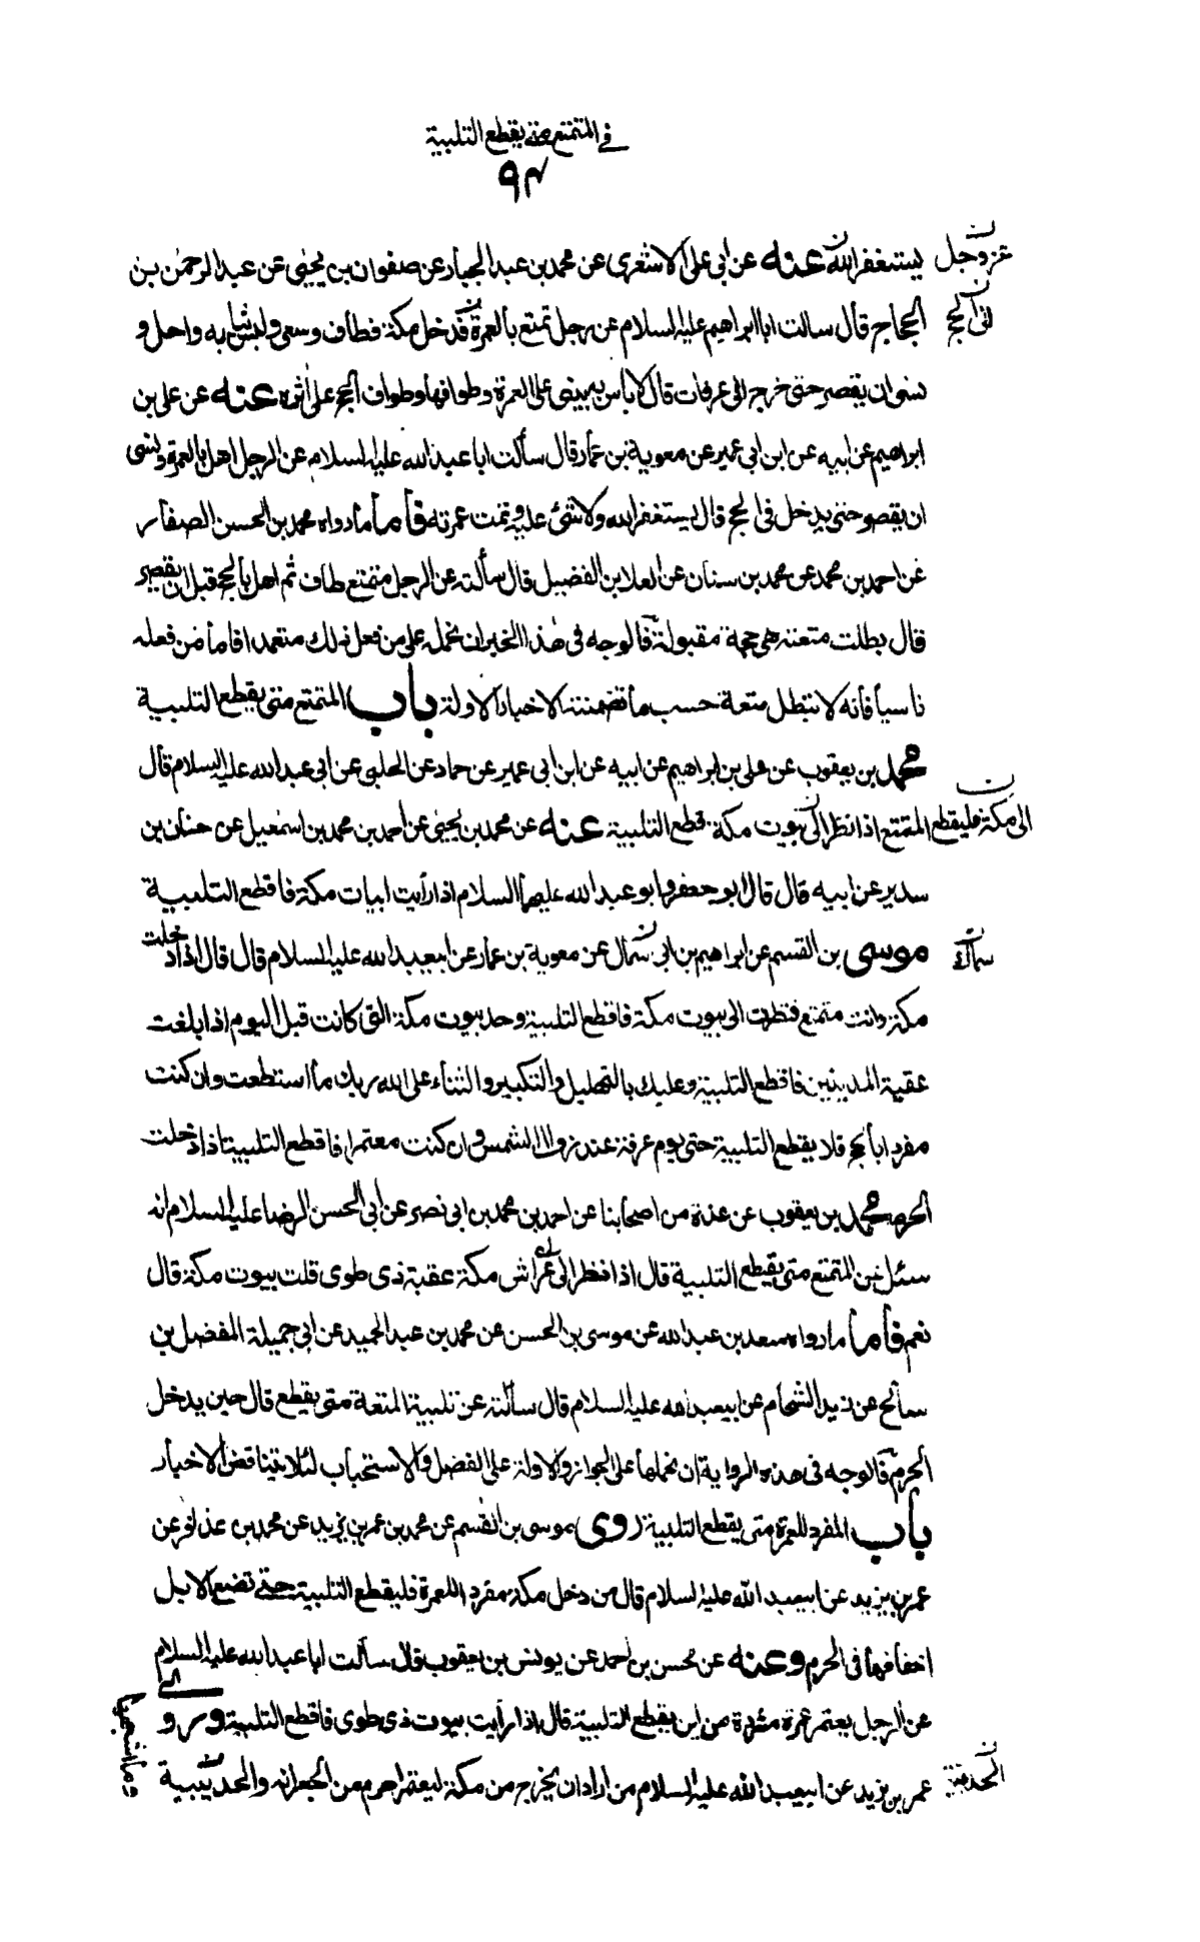 في المتمتع متى يقطع التلبية
٩٤
يستغفر الله عنه عن ابي علي الاشعري عن محمد بن عبد الجبار عن صفوان بن يحيى عن عبد الرحمن بن
عز وجل
الحجاج قال سالت ابا ابراهيم عليه السلام عن رجل تمتع بالعمرة فدخل مكة فطاف وسعى ولبس ثيابه واحل و
نسى ان يقصر حتى خرج الى عرفات قال لا باس به يبنى على العمرة وطوافها وطواف الحج على اثره عنه عن علي بن
ابراهيم عن ابيه عن ابن ابي عمير عن معوية بن عمار قال سألت ابا عبد الله عليه السلام عن الرجل اهل بالعمرة ونسى
ان يقصر حتى يدخل في الحج قال يستغفر الله ولا شئ عليه وتمت عمرته فأما ما رواه محمد بن الحسن الصفار
عن احمد بن محمد عن محمد بن سنان عن العلا بن الفضيل قال سألته عن الرجل متمتع طاف ثم اهل بالحج قبل ان يقصر
قال بطلت متعته هي حجة مقبولة فالوجه في هذا الخبر ان نحمله على من فعل ذلك متعمدا فاما من فعله
ناسيا فانه لا تبطل متعة حسب ما تضمنته الاخبار الاولة باب المتمتع متى يقطع التلبية
محمد بن يعقوب عن علي بن ابراهيم عن ابيه عن ابن ابي عمير عن حماد عن الحلبي عن ابي عبد الله عليه السلام قال
المتمتع اذا نظر الى بيوت مكة قطع التلبية عنه عن محمد بن يحيى عن احمد بن محمد بن اسمعيل عن حنان بن
سدير عن ابيه قال قال ابو جعفر وابو عبد الله عليهما السلام اذا رايت ابيات مكة فاقطع التلبية
موسى بن القسم عن ابراهيم بن ابي سمال عن معوية بن عمار عن ابيعبد الله عليه السلام قال قال اذا دخلت
سماك
مكة وانت متمتع فنظرت الى بيوت مكة فاقطع التلبية وحد بيوت مكة التي كانت قبل اليوم اذا بلغت
عقبة المدنيين فاقطع التلبية وعليك بالتهليل والتكبير والثناء على الله ربك ما استطعت وان كنت
مفردا بالحج فلا يقطع التلبية حتى يوم عرفة عند زوال الشمس وان كنت معتمرا فاقطع التلبية اذا دخلت
الحرم محمد بن يعقوب عن عدة من اصحابنا عن احمد بن محمد بن ابي نصر عن أبي الحسن الرضا عليه السلام انه
سئل عن المتمتع متى يقطع التلبية قال اذا نظر الى عراش مكة عقبة ذى طوى قلت بيوت مكة قال
نعم فأما ما رواه سعد بن عبد الله عن موسى بن الحسن عن محمد بن عبد الحميد عن ابي جميلة المفضل بن
صالح عن زيد الشحام عن ابيعبد الله عليه السلام قال سألته عن تلبية المتعة متى يقطع قال حين يدخل
الحرم فالوجه في هذه الرواية ان نحملها على الجواز والاولة على الفضل والاستحباب لئلا يتناقض الاخبار
باب المفرد للعمرة متى يقطع التلبية روى موسى بن القسم عن محمد بن عمر بن يزيد عن محمد بن عذافر عن
عمر بن يزيد عن ابيعبد الله عليه السلام قال من دخل مكة مفردا للعمرة فليقطع التلبية حتى تضع الابل
اخفافها في الحرم وعنه عن محسن بن احمد عن يونس بن يعقوب قال سألت ابا عبد الله عليه السلام
عن الرجل يعتمر عمرة مفردة من اين يقطع التلبية قال اذا رأيت بيوت ذى طوى فاقطع التلبية وروى
عمر بن يزيد عن ابيعبد الله عليه السلام من اراد ان يخرج من مكة ليعتمر احرم من الجعرانه والحديبية